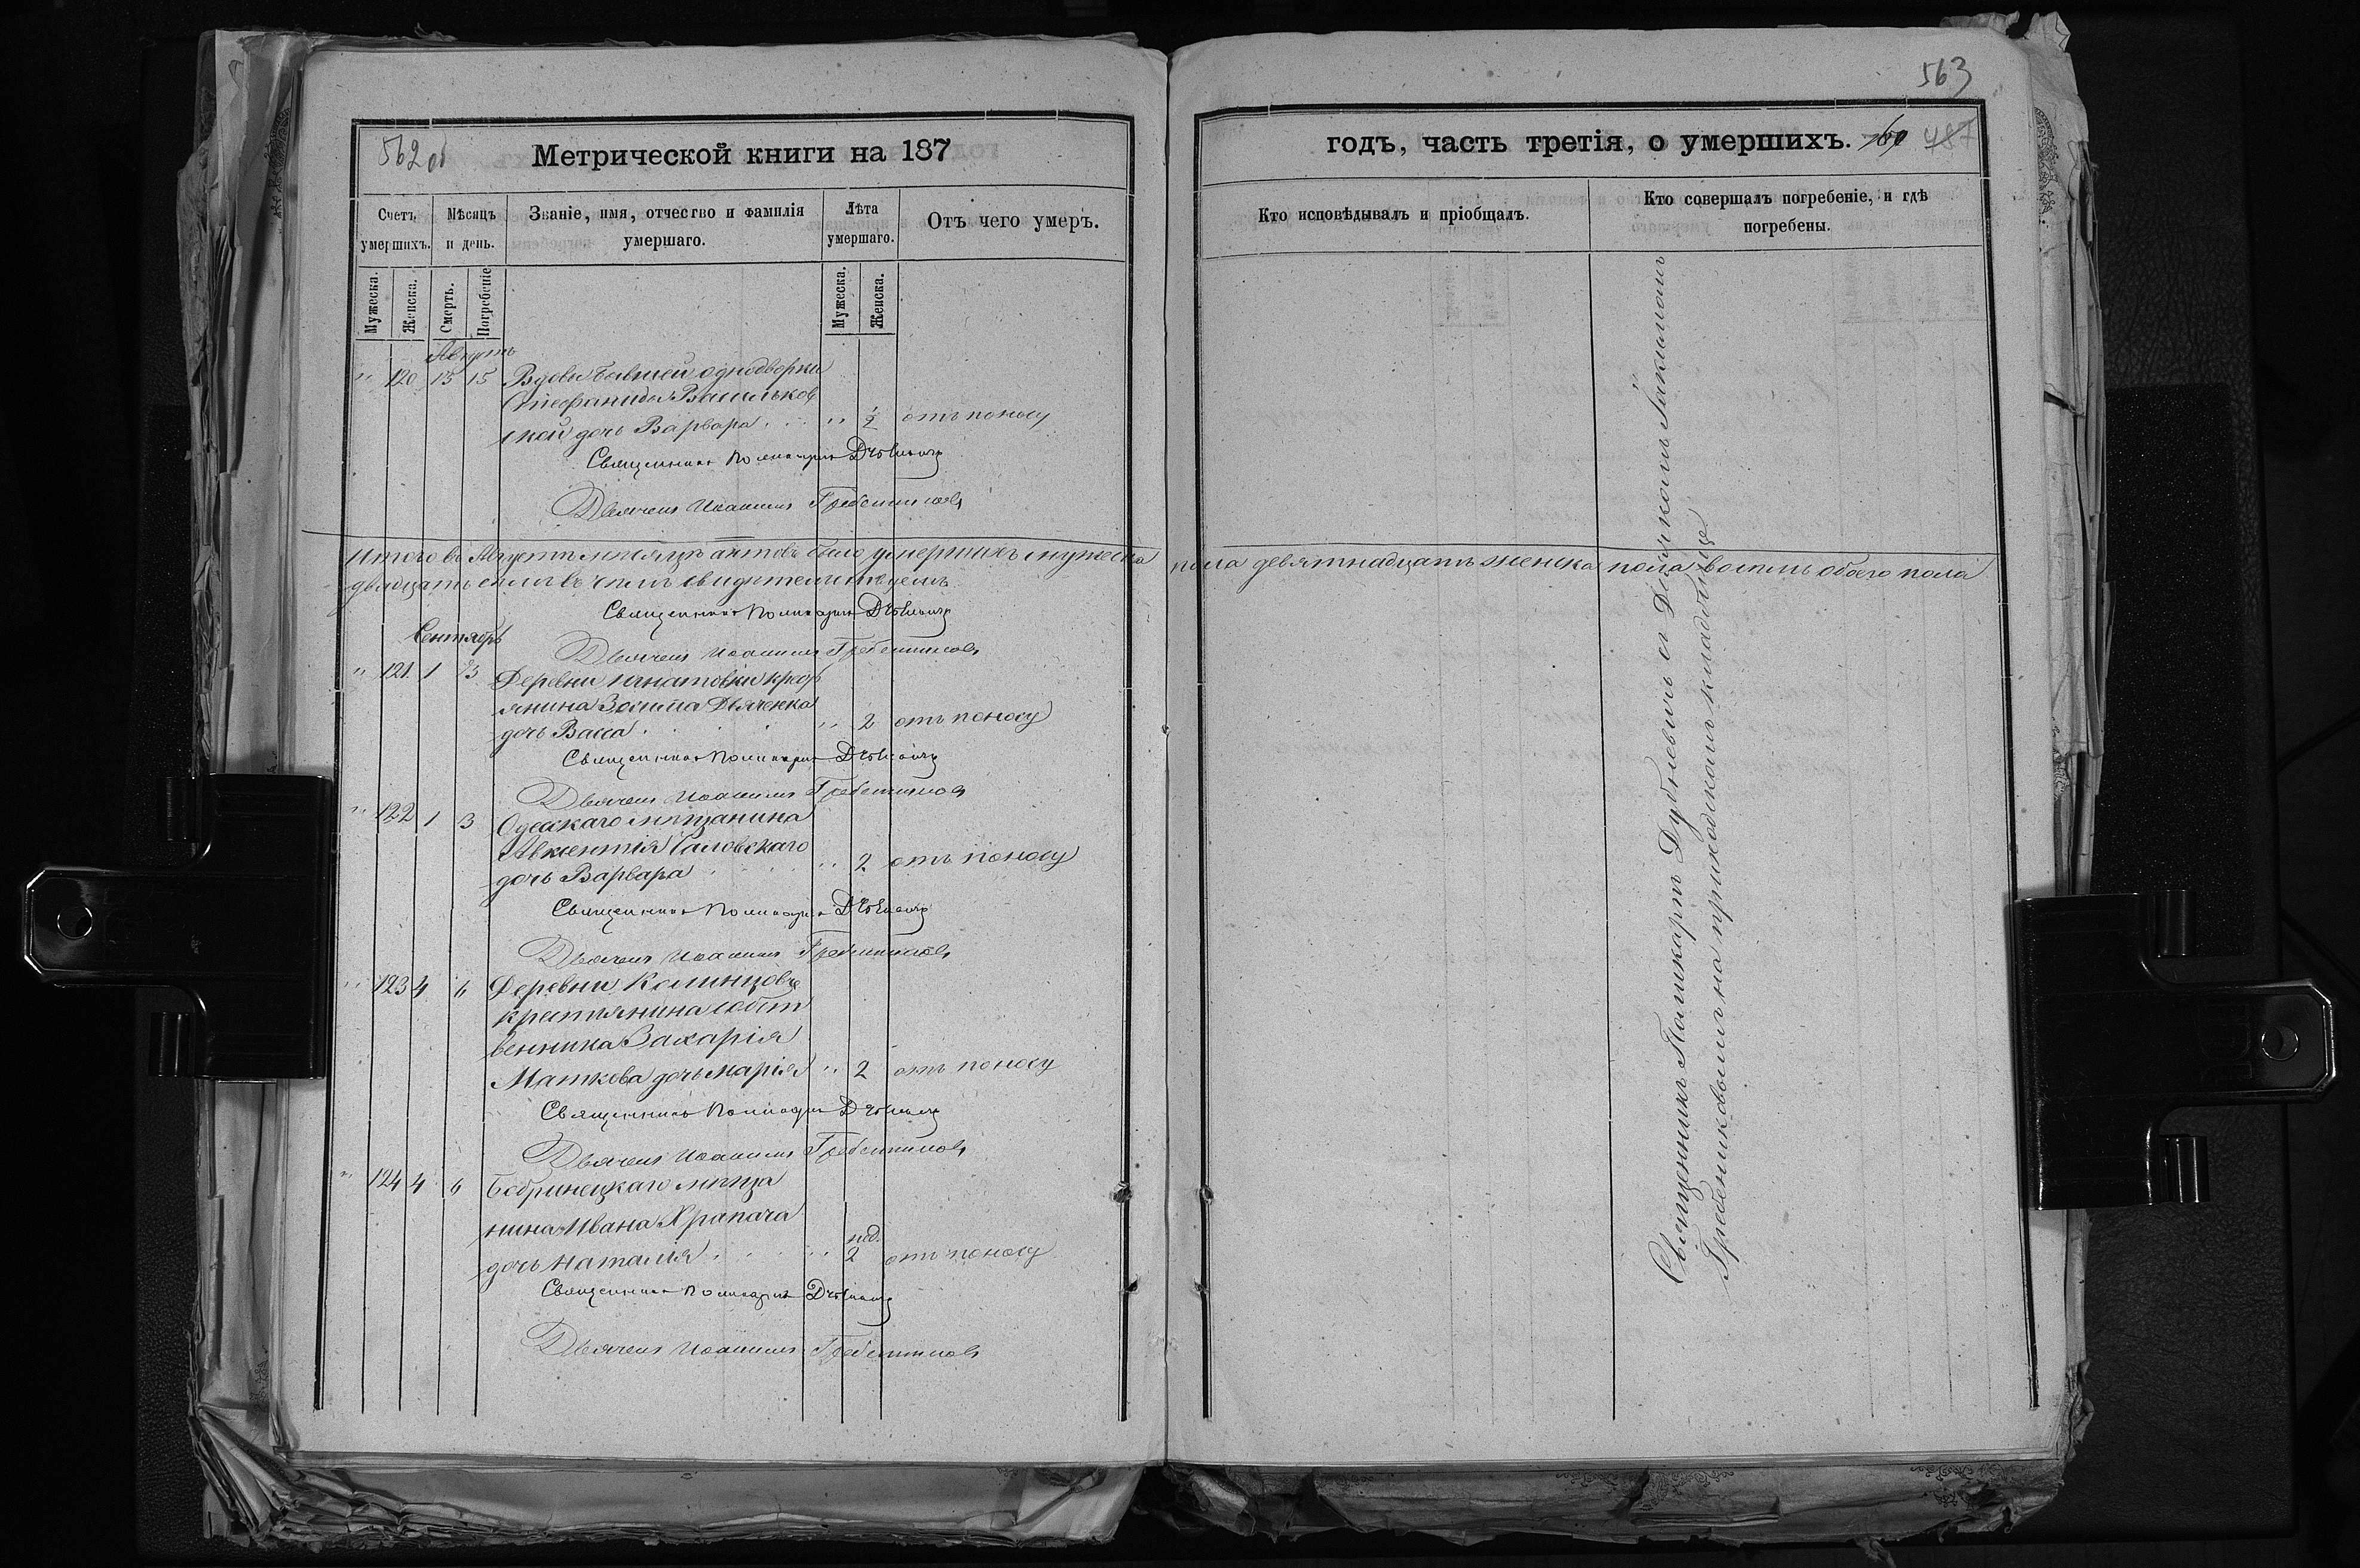 562 об
Метрической книги на 187
Счетъ умершихъ.
Мѣсяцъ и день.
Званіе, имя, отчество и фамилія умершаго.
Лѣта умершаго.
Отъ чего умеръ.
Мужеска.
Женска.
Смерть.
Погребеніе
Мужеска.
Женска.
Августъ
" 120 13 15 Вдовы бывшей однодворки
Стефаниды Васильков
ской дочь Варвара . . . " 1/2 отъ поносу
Священникъ Поликарпъ Дубневичъ
Дьячекъ Иоакимъ Гребенниковъ
Итого въ Августѣ мѣсяцѣ актовъ было умершихъ мужеска пола девятнадцать женска пола восемь обоего пола
двадцать семь въ чемъ свидетельствуемъ
Священникъ Поликарпъ Дубневичъ
Дьячекъ Иоакимъ Гребенниковъ
Сентябрь
" 121 1 3 Деревни Игнатовки крес
янина Зосима Дяченка
дочь Васса . . . " 2 отъ поносу
Священникъ Поликарпъ Дубневичъ
Дьячекъ Иоакимъ Гребенниковъ
" 122 1 3 Одесскаго мѣщанина
Авксентія
дочь Варвара . . . " 2 отъ поносу
Священникъ Поликарпъ Дубневичъ
Дьячекъ Иоакимъ Гребенниковъ
" 123 4 6 Деревни
крестьянина собст
венника Захарія
Маткова дочь Марія " 2 отъ поносу
Священникъ Поликарпъ Дубневичъ
Дьячекъ Иоакимъ Гребенниковъ
" 124 4 6 Бобринецкаго мѣща
нина Ивана Храпача
дочь Наталія . . . " 2 нед. отъ поносу
Священникъ Поликарпъ Дубневичъ
Дьячекъ Иоакимъ Гребенниковъ
563
годъ, часть третія, о умершихъ. 487
Кто исповѣдывалъ и пріобщалъ.
Кто совершалъ погребеніе, и гдѣ
погребены.
Священникъ Поликарпъ Дубневичъ съ Дьячкомъ Іоакимомъ
Гребенниковымъ на приходскомъ кладбищѣ